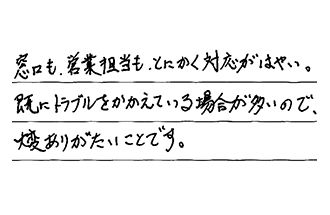 窓口も、営業担当も、とにかく対応がはやい。
既にトラブルをかかえている場合が多いので、
大変ありがたいことです。